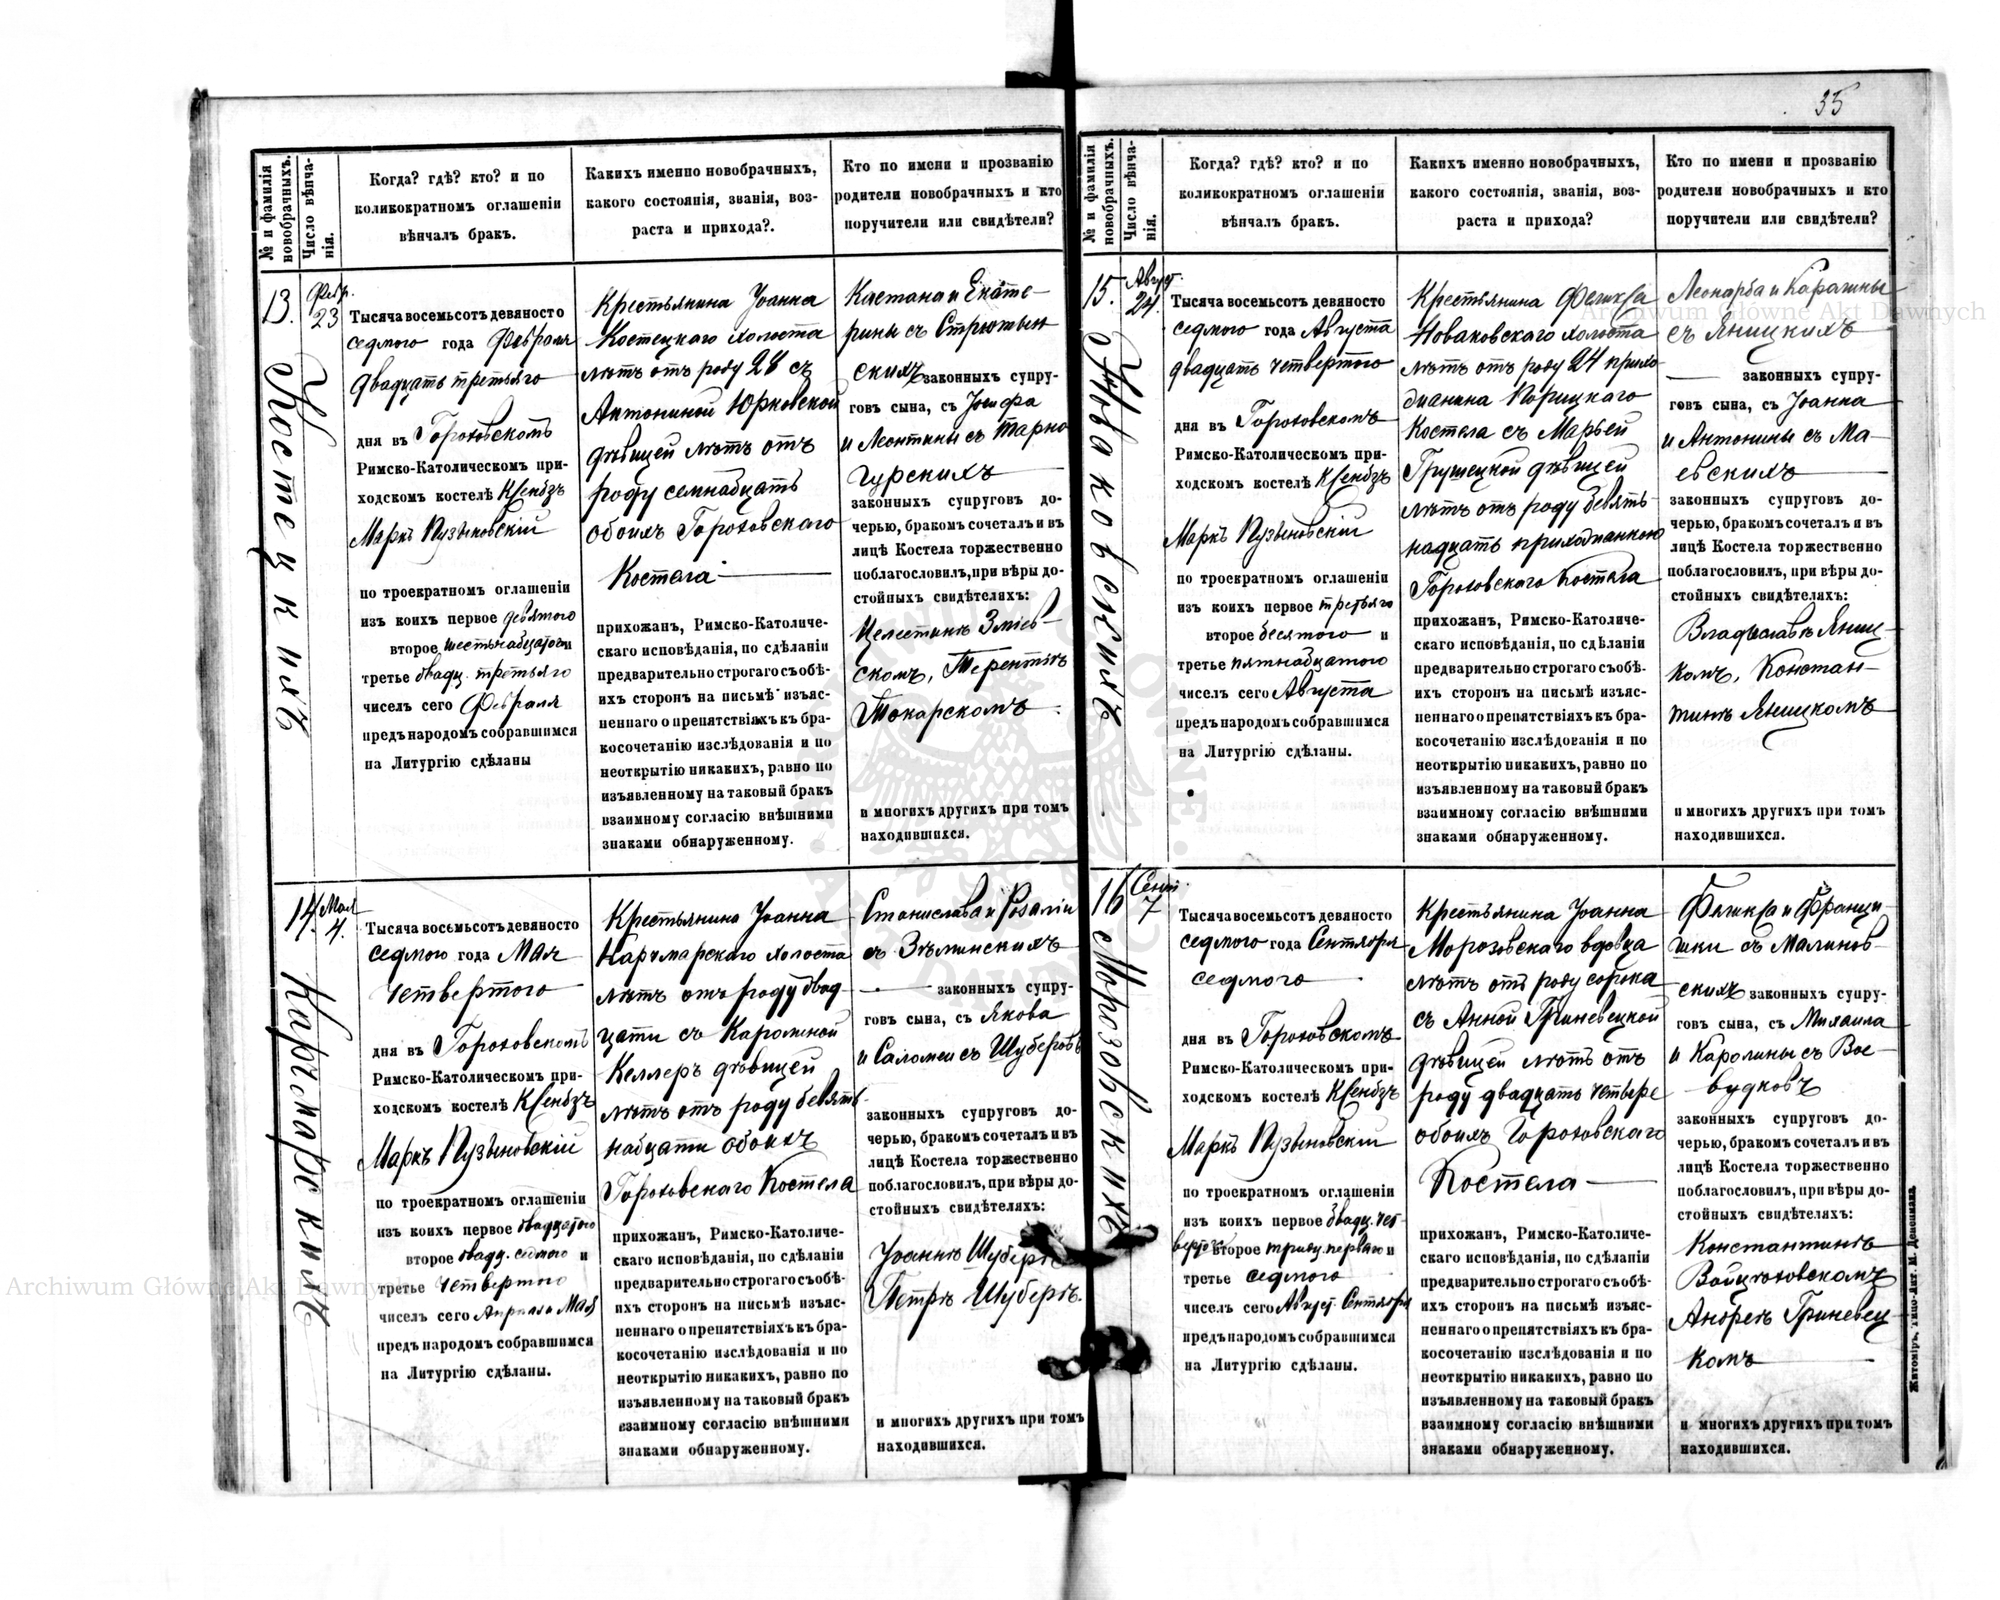 35
№ и фамилія новобрачныхъ.
Число вѣнчанія.
Когда? гдѣ? кто? и по
коликократномъ оглашеніи
вѣнчалъ бракъ.
Какихъ именно новобрачныхъ,
какого состоянія, званія, воз-
раста и прихода?.
Кто по имени и прозванію
родители новобрачныхъ и кто
поручители или свидѣтели?
13.
Костецкихъ
Февр.
23
Тысяча восемьсотъ девяносто
седмого года Февраля
двадцать третьяго
дня въ Гороховскомъ
Римско-Католическомъ при-
ходскомъ костелѣ Ксендзъ
Маркъ Пузыновскій
по троекратномъ оглашеніи
изъ коихъ первое девятого
второе шестьнадцатого и
третье двадц. третьяго
чиселъ сего Февраля
предъ народомъ собравшимся
на Литургію сдѣланы
Крестьянина Іоанна
Костецкаго холоста
лѣтъ отъ роду 28 съ
Антониной Юрковской
дѣвицей лѣтъ отъ
роду семнадцать
обоихъ Гороховскаго
Костела
прихожанъ, Римско-Католиче-
скаго исповѣданія, по сдѣланіи
предварительно строгаго съ обѣ-
ихъ сторонъ на письмѣ изъяс-
неннаго о препятствіяхъ къ бра-
косочетанію изслѣдованія и по
неоткрытію никакихъ, равно по
изъявленному на таковый бракъ
взаимному согласію внѣшними
знаками обнаруженному.
Каетана и Екате-
рины съ
скихъ законныхъ супру-
говъ сына, съ Іосифа
и Леонтины съ Тарно
гурскихъ
законныхъ супруговъ до-
черью, бракомъ сочеталъ и въ
лицѣ Костела торжественно
поблагословилъ, при вѣры до-
стойныхъ свидѣтеляхъ:
Целестинѣ Зміев-
скомъ, Терентіѣ
Токарскомъ
и многихъ другихъ при томъ
находившихся.
14.
Карчмарскихъ
Мая
4.
Тысяча восемьсотъ девяносто
седмого года Мая
четвертого
дня въ Гороховскомъ
Римско-Католическомъ при-
ходскомъ костелѣ Ксендзъ
Маркъ Пузыновскій
по троекратномъ оглашеніи
изъ коихъ первое двадцатого
второе двадц. седмого и
третье четвертого
чиселъ сего Апрѣля Мая
предъ народомъ собравшимся
на Литургію сдѣланы.
Крестьянина Іоанна
Карчмарскаго холоста
лѣтъ отъ роду двад-
цати съ Каролиной
Келлеръ дѣвицей
лѣтъ отъ роду девять-
надцати обоихъ
Гороховскаго Костела
прихожанъ, Римско-Католиче-
скаго исповѣданія, по сдѣланіи
предварительно строгаго съ обѣ-
ихъ сторонъ на письмѣ изъяс-
неннаго о препятствіяхъ къ бра-
косочетанію изслѣдованія и по
неоткрытію никакихъ, равно по
изъявленному на таковый бракъ
взаимному согласію внѣшними
знаками обнаруженному.
Станислава и Розаліи
съ Зѣлинскихъ
законныхъ супру-
говъ сына, съ Якова
и Саломеи съ Шуберовъ
законныхъ супруговъ до-
черью, бракомъ сочеталъ и въ
лицѣ Костела торжественно
поблагословилъ, при вѣры до-
стойныхъ свидѣтеляхъ:
Іоаннѣ Шуберъ
Петрѣ Шуберъ.
и многихъ другихъ при томъ
находившихся.
№ и фамилія новобрачныхъ.
Число вѣнчанія.
Когда? гдѣ? кто? и по
коликократномъ оглашеніи
вѣнчалъ бракъ.
Какихъ именно новобрачныхъ,
какого состоянія, званія, воз-
раста и прихода?
Кто по имени и прозванію
родители новобрачныхъ и кто
поручители или свидѣтели?
15.
Новаковскихъ
Август.
24.
Тысяча восемьсотъ девяносто
седмого года Августа
двадцать четвертого
дня въ Гороховскомъ
Римско-Католическомъ при-
ходскомъ костелѣ Ксендзъ
Маркъ Пузыновскій
по троекратномъ оглашеніи
изъ коихъ первое третьяго
второе десятого и
третье пятнадцатого
чиселъ сего Августа
предъ народомъ собравшимся
на Литургію сдѣланы.
Крестьянина Феликса
Новаковскаго холоста
лѣтъ отъ роду 24 прихо
діанина Порицкаго
Костела съ Марьей
Грушецкой дѣвицей
лѣтъ отъ роду девять-
надцать приходіанкою
Гороховскаго Костела
прихожанъ, Римско-Католиче-
скаго исповѣданія, по сдѣланіи
предварительно строгаго съ обѣ-
ихъ сторонъ на письмѣ изъяс-
неннаго о препятствіяхъ къ бра-
косочетанію изслѣдованія и по
неоткрытію никакихъ, равно по
изъявленному на таковый бракъ
взаимному согласію внѣшними
знаками обнаруженному.
Леонарда и Каролины
съ Яницкихъ
законныхъ супру-
говъ сына, съ Іоанна
и Антонины съ Ма-
евскихъ
законныхъ супруговъ до-
черью, бракомъ сочеталъ и въ
лицѣ Костела торжественно
поблагословилъ, при вѣры до-
стойныхъ свидѣтеляхъ:
Владыславѣ Яниц-
комъ, Констан-
тинѣ Яницкомъ
и многихъ другихъ при томъ
находившихся.
16
Морозовскихъ
Сент.
7
Тысяча восемьсотъ девяносто
седмого года Сентября
седмого
дня въ Гороховскомъ
Римско-Католическомъ при-
ходскомъ костелѣ Ксендзъ
Маркъ Пузыновскій
по троекратномъ оглашеніи
изъ коихъ первое двадц. чет-
вертого второе тридц. перваго и
третье седмого
чиселъ сего Август. Сентября
предъ народомъ собравшимся
на Литургію сдѣланы.
Крестьянина Іоанна
Морозовскаго вдовца
лѣтъ отъ роду сорока
съ Анной Гриневецкой
дѣвицей лѣтъ отъ
роду двадцать четыре
обоихъ Гороховскаго
Костела
прихожанъ, Римско-Католиче-
скаго исповѣданія, по сдѣланіи
предварительно строгаго съ обѣ-
ихъ сторонъ на письмѣ изъяс-
неннаго о препятствіяхъ къ бра-
косочетанію изслѣдованія и по
неоткрытію никакихъ, равно по
изъявленному на таковый бракъ
взаимному согласію внѣшними
знаками обнаруженному.
Феликса и Франци-
шки съ Малинов-
скихъ законныхъ супру-
говъ сына, съ Михаила
и Каролины съ Вое-
вудковъ
законныхъ супруговъ до-
черью, бракомъ сочеталъ и въ
лицѣ Костела торжественно
поблагословилъ, при вѣры до-
стойныхъ свидѣтеляхъ:
Константинѣ
Войцѣховскомъ
Андреѣ Гриневец
комъ
и многихъ другихъ при томъ
находившихся.
Житоміръ, Типо-Лит. М. Дененмана.
Archiwum Główne Akt Dawnych
Archiwum Główne Akt Dawnych